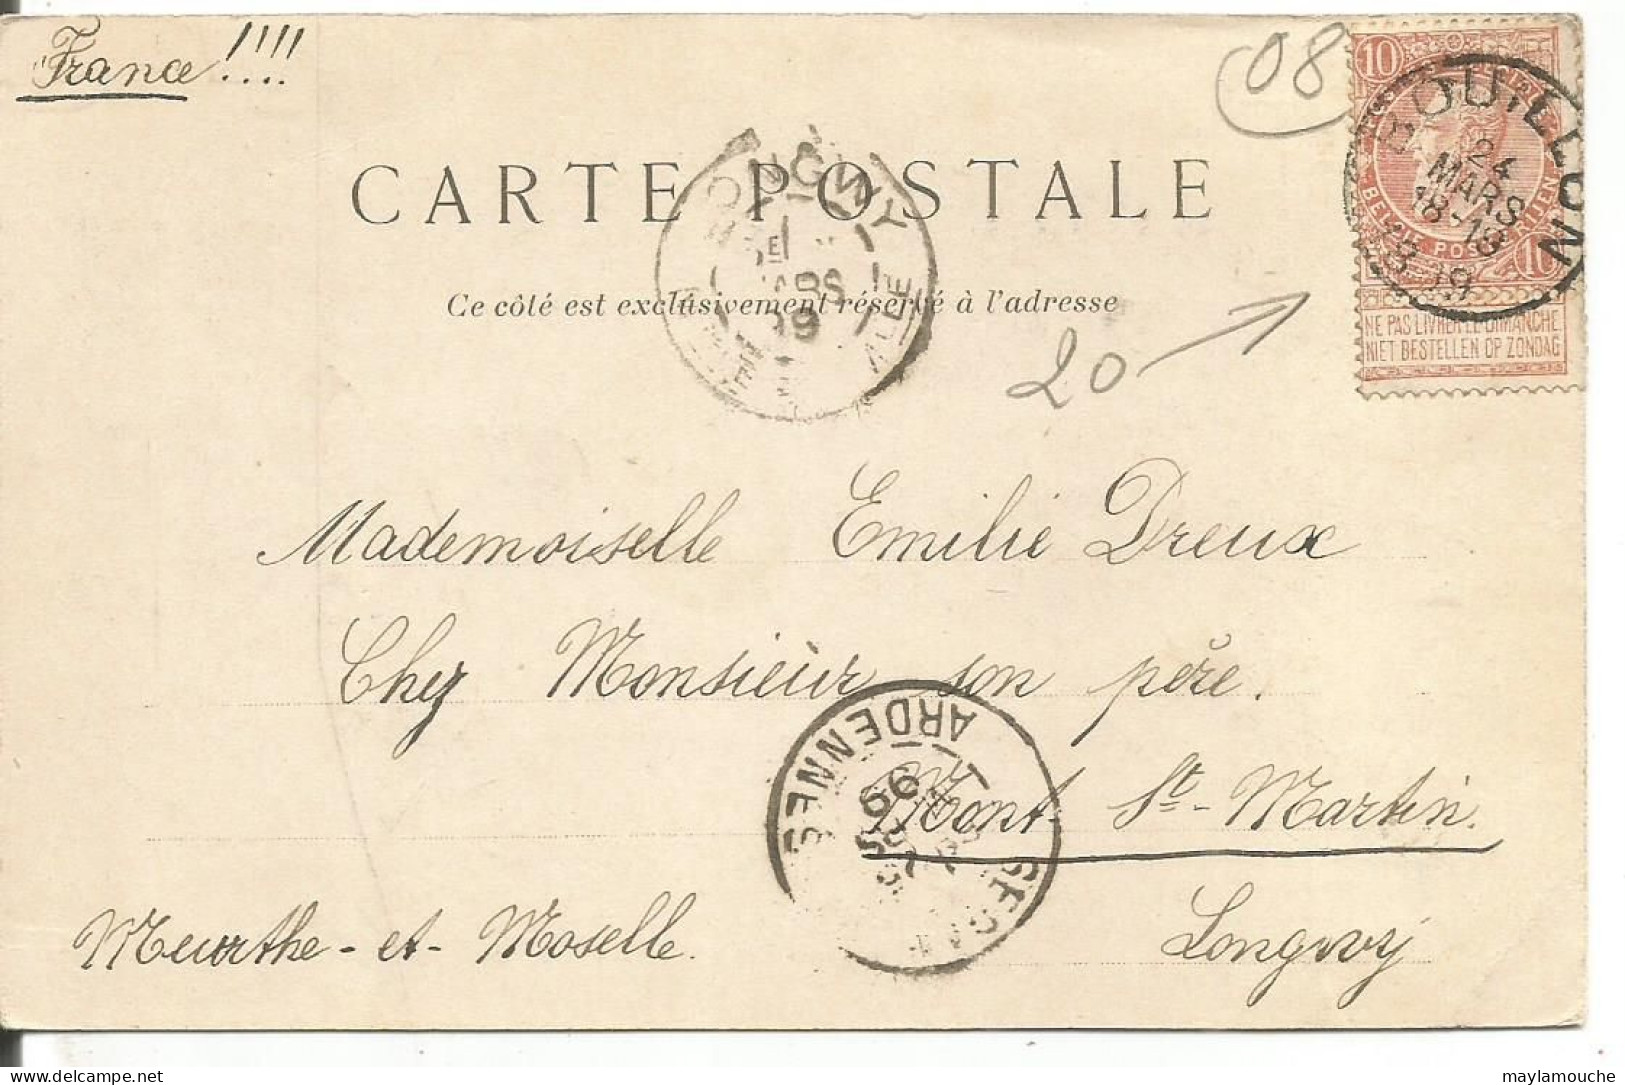 France!!!!
08
10 10
BOUILLON
24
MARS
18-19
1899
BELGIE POSTERIJEN
10
NE PAS LIVRER LE DIMANCHE.
NIET BESTELLEN OP ZONDAG
CARTE POSTALE
LONGWY
MARS
99
Ce côté est exclusivement réservé à l'adresse
20
Mademoiselle Emilie Dreux
Chez Monsieur son père.
Mont St-Martin.
Longwy
Meurthe-et-Moselle.
SEDAN
ARDENNES
25
99
maylamouche